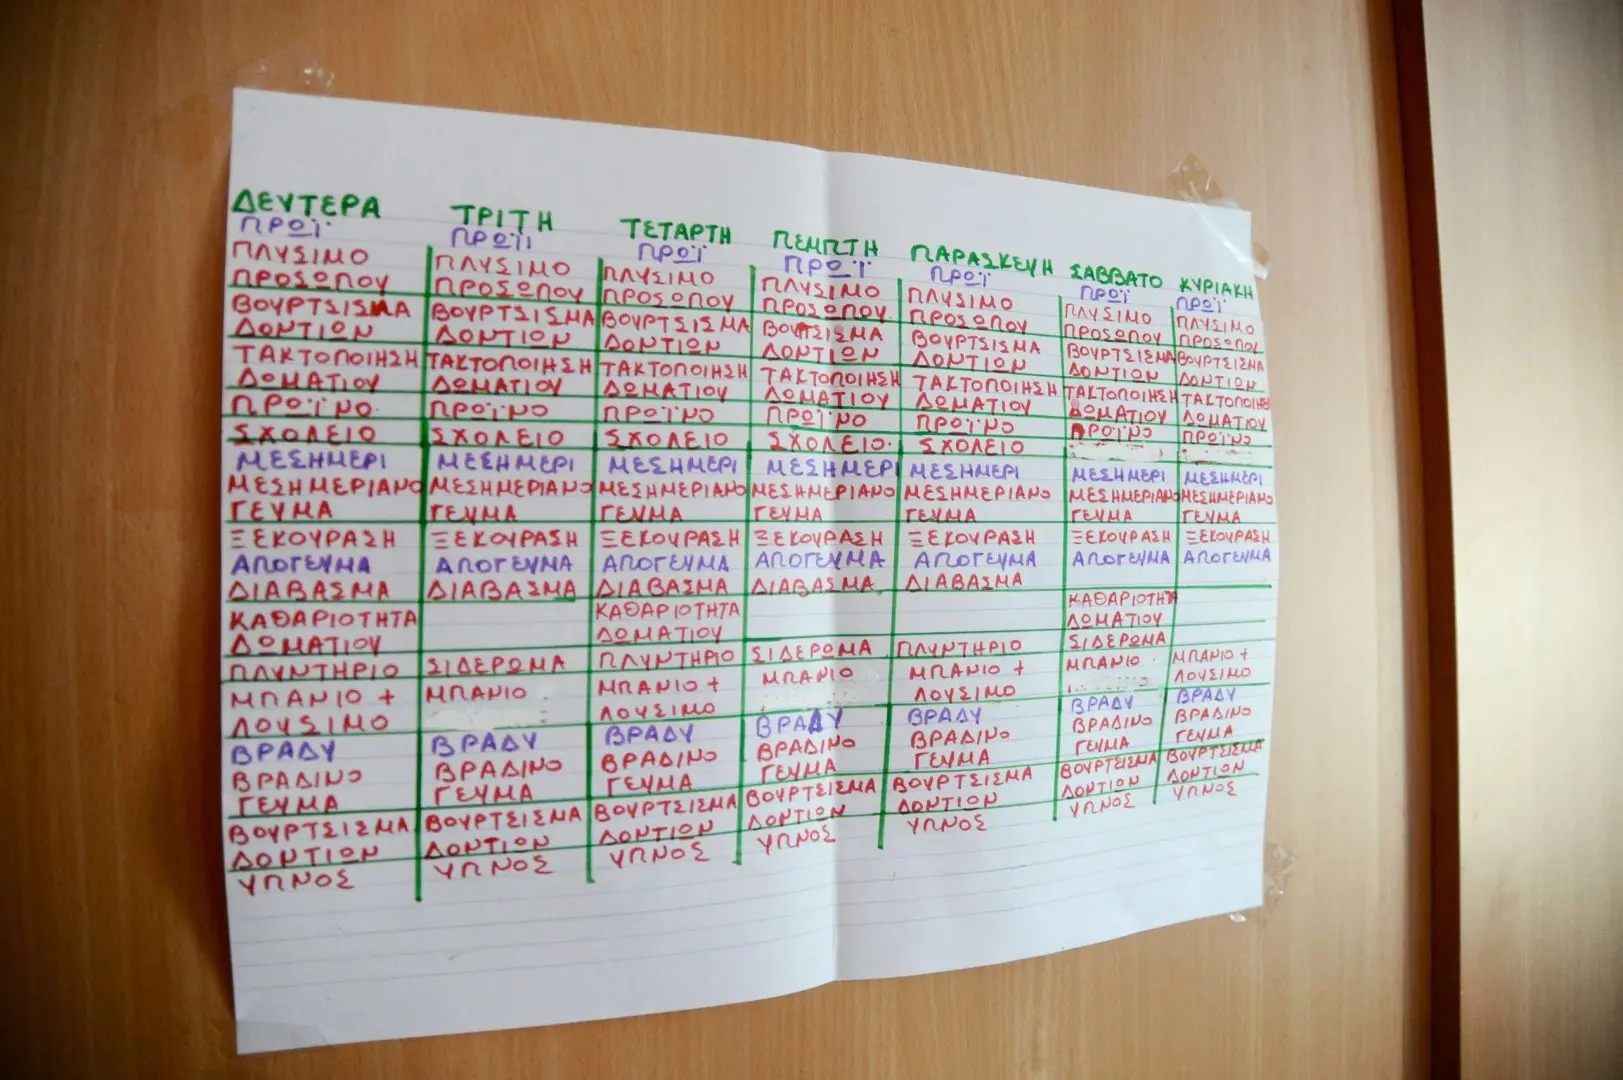 ΔΕΥΤΕΡΑ
ΠΡΩΪ
ΠΛΥΣΙΜΟ
ΠΡΟΣΩΠΟΥ
ΒΟΥΡΤΣΙΣΜΑ
ΔΟΝΤΙΩΝ
ΤΑΚΤΟΠΟΙΗΣΗ
ΔΩΜΑΤΙΟΥ
ΠΡΩΪΝΟ
ΣΧΟΛΕΙΟ
ΜΕΣΗΜΕΡΙ
ΜΕΣΗΜΕΡΙΑΝΟ
ΓΕΥΜΑ
ΞΕΚΟΥΡΑΣΗ
ΑΠΟΓΕΥΜΑ
ΔΙΑΒΑΣΜΑ
ΚΑΘΑΡΙΟΤΗΤΑ
ΔΩΜΑΤΙΟΥ
ΠΛΥΝΤΗΡΙΟ
ΜΠΑΝΙΟ +
ΛΟΥΣΙΜΟ
ΒΡΑΔΥ
ΒΡΑΔΙΝΟ
ΓΕΥΜΑ
ΒΟΥΡΤΣΙΣΜΑ
ΔΟΝΤΙΩΝ
ΥΠΝΟΣ
ΤΡΙΤΗ
ΠΡΩΪ
ΠΛΥΣΙΜΟ
ΠΡΟΣΩΠΟΥ
ΒΟΥΡΤΣΙΣΜΑ
ΔΟΝΤΙΩΝ
ΤΑΚΤΟΠΟΙΗΣΗ
ΔΩΜΑΤΙΟΥ
ΠΡΩΪΝΟ
ΣΧΟΛΕΙΟ
ΜΕΣΗΜΕΡΙ
ΜΕΣΗΜΕΡΙΑΝΟ
ΓΕΥΜΑ
ΞΕΚΟΥΡΑΣΗ
ΑΠΟΓΕΥΜΑ
ΔΙΑΒΑΣΜΑ
ΣΙΔΕΡΩΜΑ
ΜΠΑΝΙΟ
ΒΡΑΔΥ
ΒΡΑΔΙΝΟ
ΓΕΥΜΑ
ΒΟΥΡΤΣΙΣΜΑ
ΔΟΝΤΙΩΝ
ΥΠΝΟΣ
ΤΕΤΑΡΤΗ
ΠΡΩΪ
ΠΛΥΣΙΜΟ
ΠΡΟΣΩΠΟΥ
ΒΟΥΡΤΣΙΣΜΑ
ΔΟΝΤΙΩΝ
ΤΑΚΤΟΠΟΙΗΣΗ
ΔΩΜΑΤΙΟΥ
ΠΡΩΪΝΟ
ΣΧΟΛΕΙΟ
ΜΕΣΗΜΕΡΙ
ΜΕΣΗΜΕΡΙΑΝΟ
ΓΕΥΜΑ
ΞΕΚΟΥΡΑΣΗ
ΑΠΟΓΕΥΜΑ
ΔΙΑΒΑΣΜΑ
ΚΑΘΑΡΙΟΤΗΤΑ
ΔΩΜΑΤΙΟΥ
ΠΛΥΝΤΗΡΙΟ
ΜΠΑΝΙΟ +
ΛΟΥΣΙΜΟ
ΒΡΑΔΥ
ΒΡΑΔΙΝΟ
ΓΕΥΜΑ
ΒΟΥΡΤΣΙΣΜΑ
ΔΟΝΤΙΩΝ
ΥΠΝΟΣ
ΠΕΜΠΤΗ
ΠΡΩΪ
ΠΛΥΣΙΜΟ
ΠΡΟΣΩΠΟΥ
ΒΟΥΡΤΣΙΣΜΑ
ΔΟΝΤΙΩΝ
ΤΑΚΤΟΠΟΙΗΣΗ
ΔΩΜΑΤΙΟΥ
ΠΡΩΪΝΟ
ΣΧΟΛΕΙΟ
ΜΕΣΗΜΕΡΙ
ΜΕΣΗΜΕΡΙΑΝΟ
ΓΕΥΜΑ
ΞΕΚΟΥΡΑΣΗ
ΑΠΟΓΕΥΜΑ
ΔΙΑΒΑΣΜΑ
ΣΙΔΕΡΩΜΑ
ΜΠΑΝΙΟ
ΒΡΑΔΥ
ΒΡΑΔΙΝΟ
ΓΕΥΜΑ
ΒΟΥΡΤΣΙΣΜΑ
ΔΟΝΤΙΩΝ
ΥΠΝΟΣ
ΠΑΡΑΣΚΕΥΗ
ΠΡΩΪ
ΠΛΥΣΙΜΟ
ΠΡΟΣΩΠΟΥ
ΒΟΥΡΤΣΙΣΜΑ
ΔΟΝΤΙΩΝ
ΤΑΚΤΟΠΟΙΗΣΗ
ΔΩΜΑΤΙΟΥ
ΠΡΩΪΝΟ
ΣΧΟΛΕΙΟ
ΜΕΣΗΜΕΡΙ
ΜΕΣΗΜΕΡΙΑΝΟ
ΓΕΥΜΑ
ΞΕΚΟΥΡΑΣΗ
ΑΠΟΓΕΥΜΑ
ΔΙΑΒΑΣΜΑ
ΠΛΥΝΤΗΡΙΟ
ΜΠΑΝΙΟ +
ΛΟΥΣΙΜΟ
ΒΡΑΔΥ
ΒΡΑΔΙΝΟ
ΓΕΥΜΑ
ΒΟΥΡΤΣΙΣΜΑ
ΔΟΝΤΙΩΝ
ΥΠΝΟΣ
ΣΑΒΒΑΤΟ
ΠΡΩΪ
ΠΛΥΣΙΜΟ
ΠΡΟΣΩΠΟΥ
ΒΟΥΡΤΣΙΣΜΑ
ΔΟΝΤΙΩΝ
ΤΑΚΤΟΠΟΙΗΣΗ
ΔΩΜΑΤΙΟΥ
ΠΡΩΪΝΟ
ΜΕΣΗΜΕΡΙ
ΜΕΣΗΜΕΡΙΑΝΟ
ΓΕΥΜΑ
ΞΕΚΟΥΡΑΣΗ
ΑΠΟΓΕΥΜΑ
ΚΑΘΑΡΙΟΤΗΤΑ
ΔΩΜΑΤΙΟΥ
ΣΙΔΕΡΩΜΑ
ΜΠΑΝΙΟ
ΒΡΑΔΥ
ΒΡΑΔΙΝΟ
ΓΕΥΜΑ
ΒΟΥΡΤΣΙΣΜΑ
ΔΟΝΤΙΩΝ
ΥΠΝΟΣ
ΚΥΡΙΑΚΗ
ΠΡΩΪ
ΠΛΥΣΙΜΟ
ΠΡΟΣΩΠΟΥ
ΒΟΥΡΤΣΙΣΜΑ
ΔΟΝΤΙΩΝ
ΤΑΚΤΟΠΟΙΗΣΗ
ΔΩΜΑΤΙΟΥ
ΠΡΩΪΝΟ
ΜΕΣΗΜΕΡΙ
ΜΕΣΗΜΕΡΙΑΝΟ
ΓΕΥΜΑ
ΞΕΚΟΥΡΑΣΗ
ΑΠΟΓΕΥΜΑ
ΜΠΑΝΙΟ +
ΛΟΥΣΙΜΟ
ΒΡΑΔΥ
ΒΡΑΔΙΝΟ
ΓΕΥΜΑ
ΒΟΥΡΤΣΙΣΜΑ
ΔΟΝΤΙΩΝ
ΥΠΝΟΣ